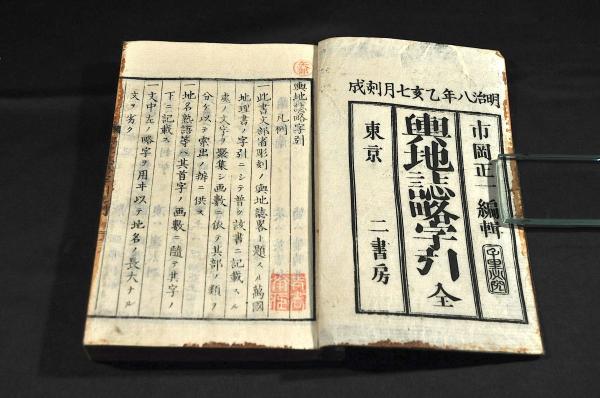 明治八年乙亥七月刻成
市岡正一編輯
輿地誌略字引 全
東京 二書房
輿地誌略字引
凡例
一此書文部省彫刻ノ輿地誌畧ト題スル萬國
地理書ノ字引ニシテ普ク該書ニ記載スル
處ノ文字ヲ聚集シ画數ニ依テ其部ノ類ヲ
分ケ以テ索出ノ辨ニ供ス
一地名熟語等ハ其首字ノ画數ニ随テ其字ノ
下ニ記載ス
一文中左ノ略字ヲ用ヰ以テ地名ノ長大ナル
文ヲ省ク